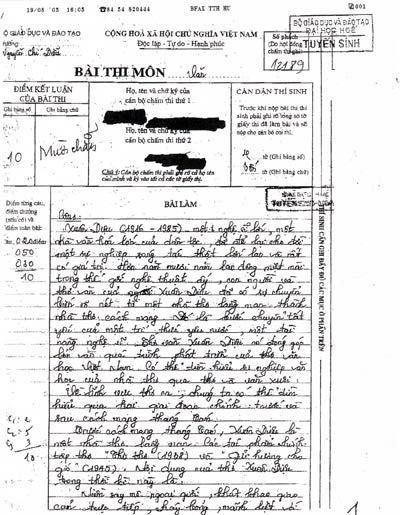 19/08 '03 16:03 ☎84 54 820444 BFAX TTH HU 001
BỘ GIÁO DỤC VÀ ĐÀO TẠO
ĐẠI HỌC HUẾ
TUYỂN SINH
O GIÁO DỤC VÀ ĐÀO TẠO
CỘNG HOÀ XÃ HỘI CHỦ NGHĨA VIỆT NAM
Độc lập - Tự do - Hạnh phúc
Số phách
12189
BÀI THI MÔN Văn
ĐIỂM KẾT LUẬN
CỦA BÀI THI
Ghi bằng số
Ghi bằng chữ
10
Mười chẵn
Họ, tên và chữ ký của
cán bộ chấm thi thứ 1
Họ, tên và chữ ký của
cán bộ chấm thi thứ 2
Chú ý: Cán bộ chấm thi phải ghi rõ họ tên
của mình và ký vào tất cả các tờ giấy thi.
CẦN DẶN THÍ SINH
Trước khi nộp bài thi thí
sinh phải ghi rõ tổng số tờ
giấy thi đã làm bài và sẽ
nộp cho cán bộ coi thi.
tờ (Ghi bằng số)
tờ (Ghi bằng chữ)
BÀI LÀM
TUYỂN
050
030
10
Xuân Diệu (1916 - 1985) một nghệ sĩ lớn, một
nhà văn hóa lớn của dân tộc, đã để lại cho đời
một sự nghiệp sáng tác thật lớn lao và rất
có giá trị. Hơn năm mươi năm lao động miệt mài
trong thế giới nghệ thuật ấy, con người và
thơ văn của Xuân Diệu đã có sự chuyển
biến rõ nét từ một nhà thơ lãng mạn thành
nhà thơ cách mạng. Đó là bước chuyển tất
yếu của một trí thức yêu nước, một tài
năng nghệ sĩ. Thơ văn Xuân Diệu có đóng góp
lớn vào quá trình phát triển của thơ văn
học Việt Nam. Có thể tìm hiểu sự nghiệp văn
học của nhà thơ qua thơ và văn xuôi.
Về lĩnh vực thơ ca, chúng ta có thể tìm
hiểu qua hai giai đoạn chính: trước và
sau cách mạng tháng Tám.
Trước cách mạng tháng Tám, Xuân Diệu là
một nhà thơ lãng mạn. Các tác phẩm chính:
tập thơ "Thơ thơ (1938) và "Gửi hương cho
gió" (1945). Nội dung của thơ Xuân Diệu
trong thời kì này là:
Niềm say mê ngoại giới, khát khao giao
cảm trực tiếp, cháy bỏng, mãnh liệt với
1